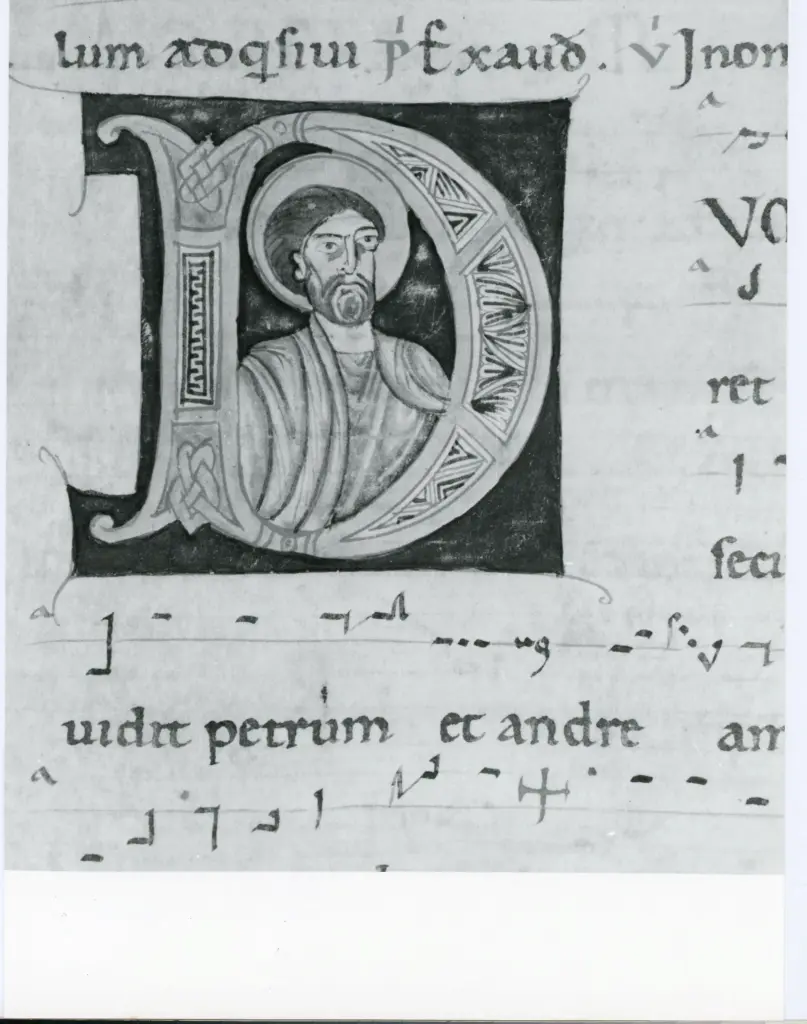 lum adqſiui p̄ Exaud. v Jnom
D
VO
ret
ſecu
uidit petrum et andre am